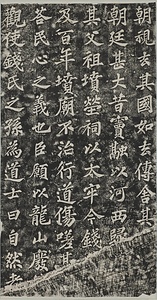 朝視去其國如去傳舍其
朝廷甚大昔竇融以河西歸
其父祖墳塋祠以太牢今錢
及百年墳廟不治行道傷嗟甚
答民心之義也臣願以龍山廢
觀使錢氏之孫為道士曰自然者